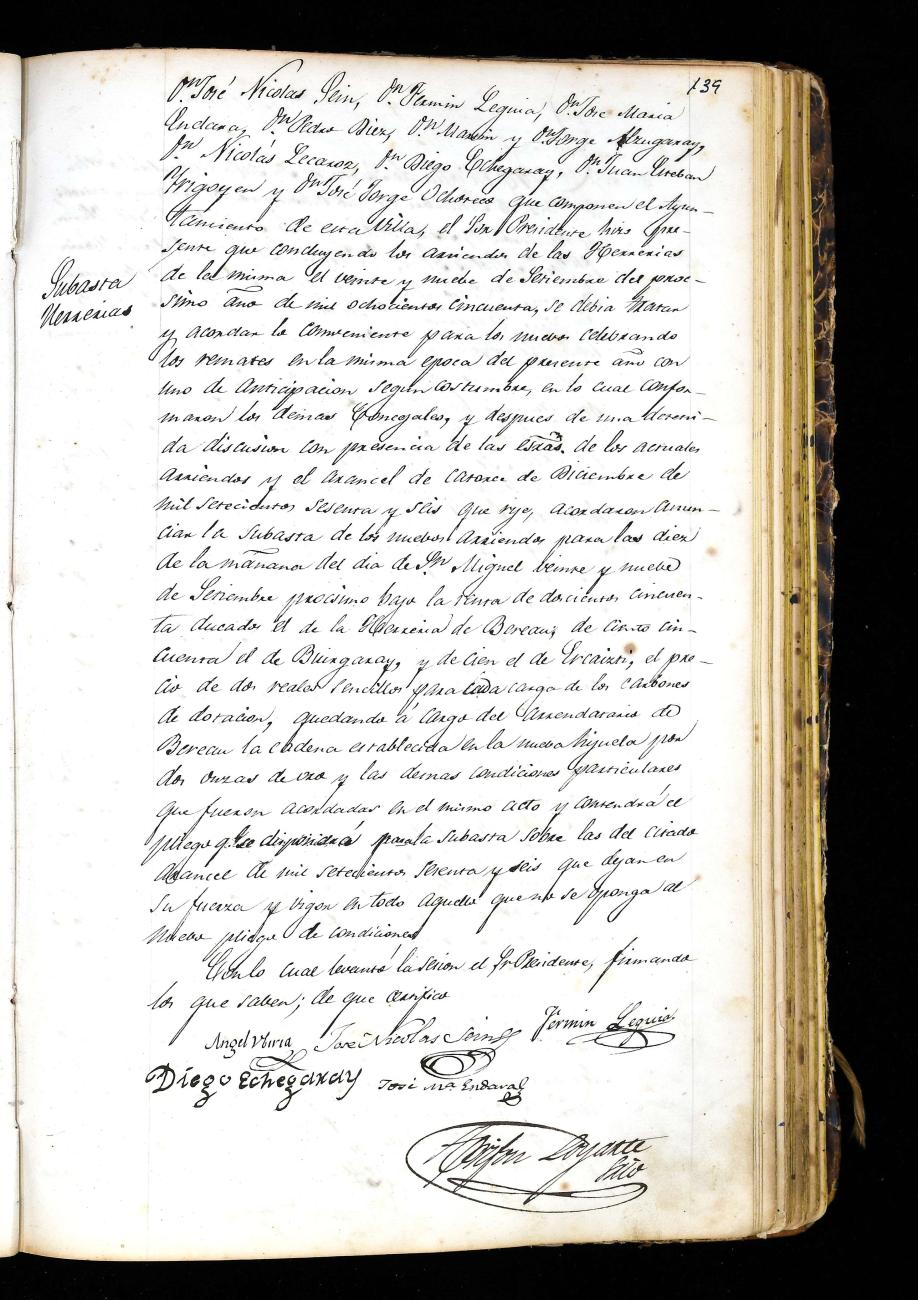 139
Dn José Nicolas Sein, Dn Fermin Leguia, Dn Jose Maria
Endara, Dn Pedro Diez, Dn Martin y Dn Jorge Alzugaray,
Dn Nicolás Lecaroz, Dn Diego Echegaray, Dn Juan Esteban
Yrigoyen y Dn José Jorge Ochoteco que componen el Ayun-
tamiento de esta Villa, el Sor Presidente hizo pre-
sente que concluyendo los arriendos de las Herrerias
Subasta
Herrerias
de la misma el veinte y nuebe de Setiembre del proc-
simo año de mil ochocientos cincuenta, se debia tratar
y acordar lo combeniente para los nuebos celebrando
los remates en la misma epoca del presente año con
uno de anticipacion segun costumbre, en lo cual confor-
maron los demas Concegales, y despues de una deteni-
da discusion con presencia de las esras. de los actuales
arriendos y el arancel de catorce de Diciembre de
mil setecientos sesenta y seis que rije, acordaron anun-
ciar la subasta de los nuebos arriendos para las diez
de la mañana del dia de Sn Miguel veinte y nuebe
de Setiembre procsimo bajo la renta de doscientos cincuen-
ta ducados el de la Herreria de Bereau, de ciento cin-
cuenta el de Biurgaray, y de cien el de Ercaizti, el pre-
cio de dos reales sencillos para cada carga de los carbones
de dotacion, quedando á cargo del arrendatario de
Bereau la cadena establecida en la nueba hijuela por
dos onzas de oro y las demas condiciones particulares
que fueron acordadas en el mismo acto y contendrá el
pliego q. se dispondrá para la subasta sobre las del citado
arancel de mil setecientos sesenta y seis que dejan en
su fuerza y vigor en todo aquello que no se oponga al
nuebo pliego de condiciones
Con lo cual levantó la sesion el Sr Presidente, firmando
los que saben; de que certifico
Angel José Nicolas Sein Fermin Leguia
Diego Echegaray José Ma. Endara
Oyarte
Srio